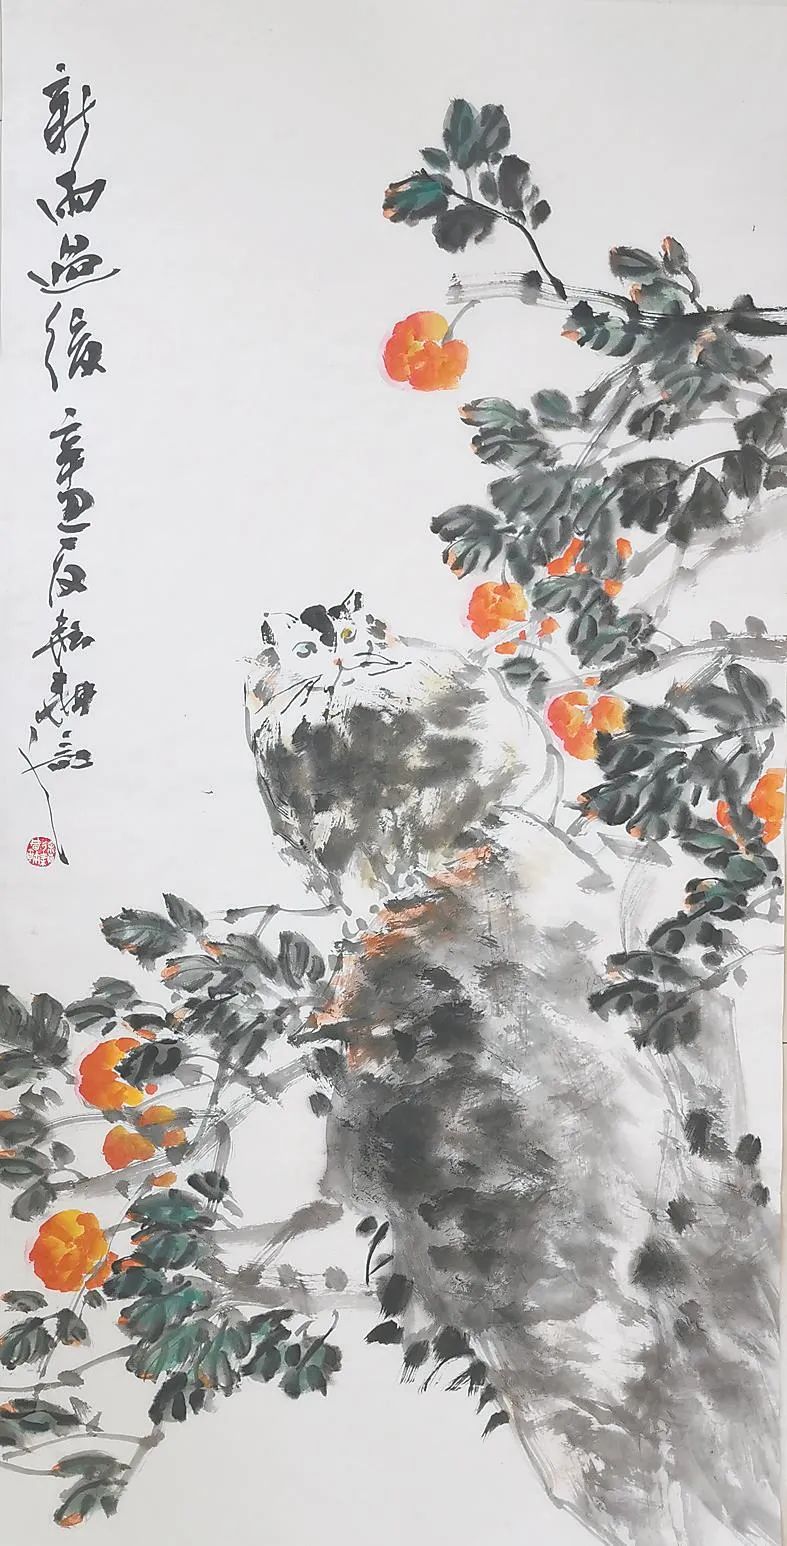 新雨過後 辛丑夏 記